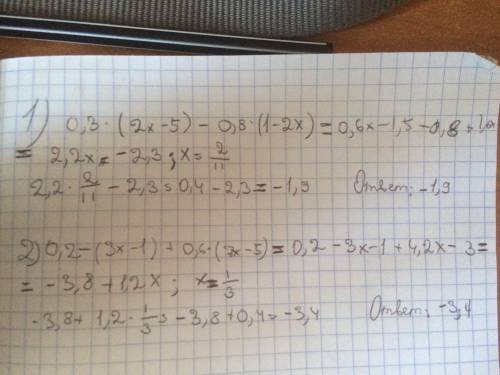 1) 0,3·(2x-5) - 0,8·(1-2x) = 0,6x-1,5-0,8+1,6x
= 2,2x - 2,3; x = 2/11
2,2 · 2/11 - 2,3 = 0,4 - 2,3 = -1,9 Ответ: -1,9
2) 0,2-(3x-1) + 0,6·(7x-5) = 0,2 - 3x-1 + 4,2x - 3 =
= -3,8 + 1,2x; x = 1/3
-3,8 + 1,2 · 1/3 = -3,8 + 0,4 = -3,4 Ответ: -3,4